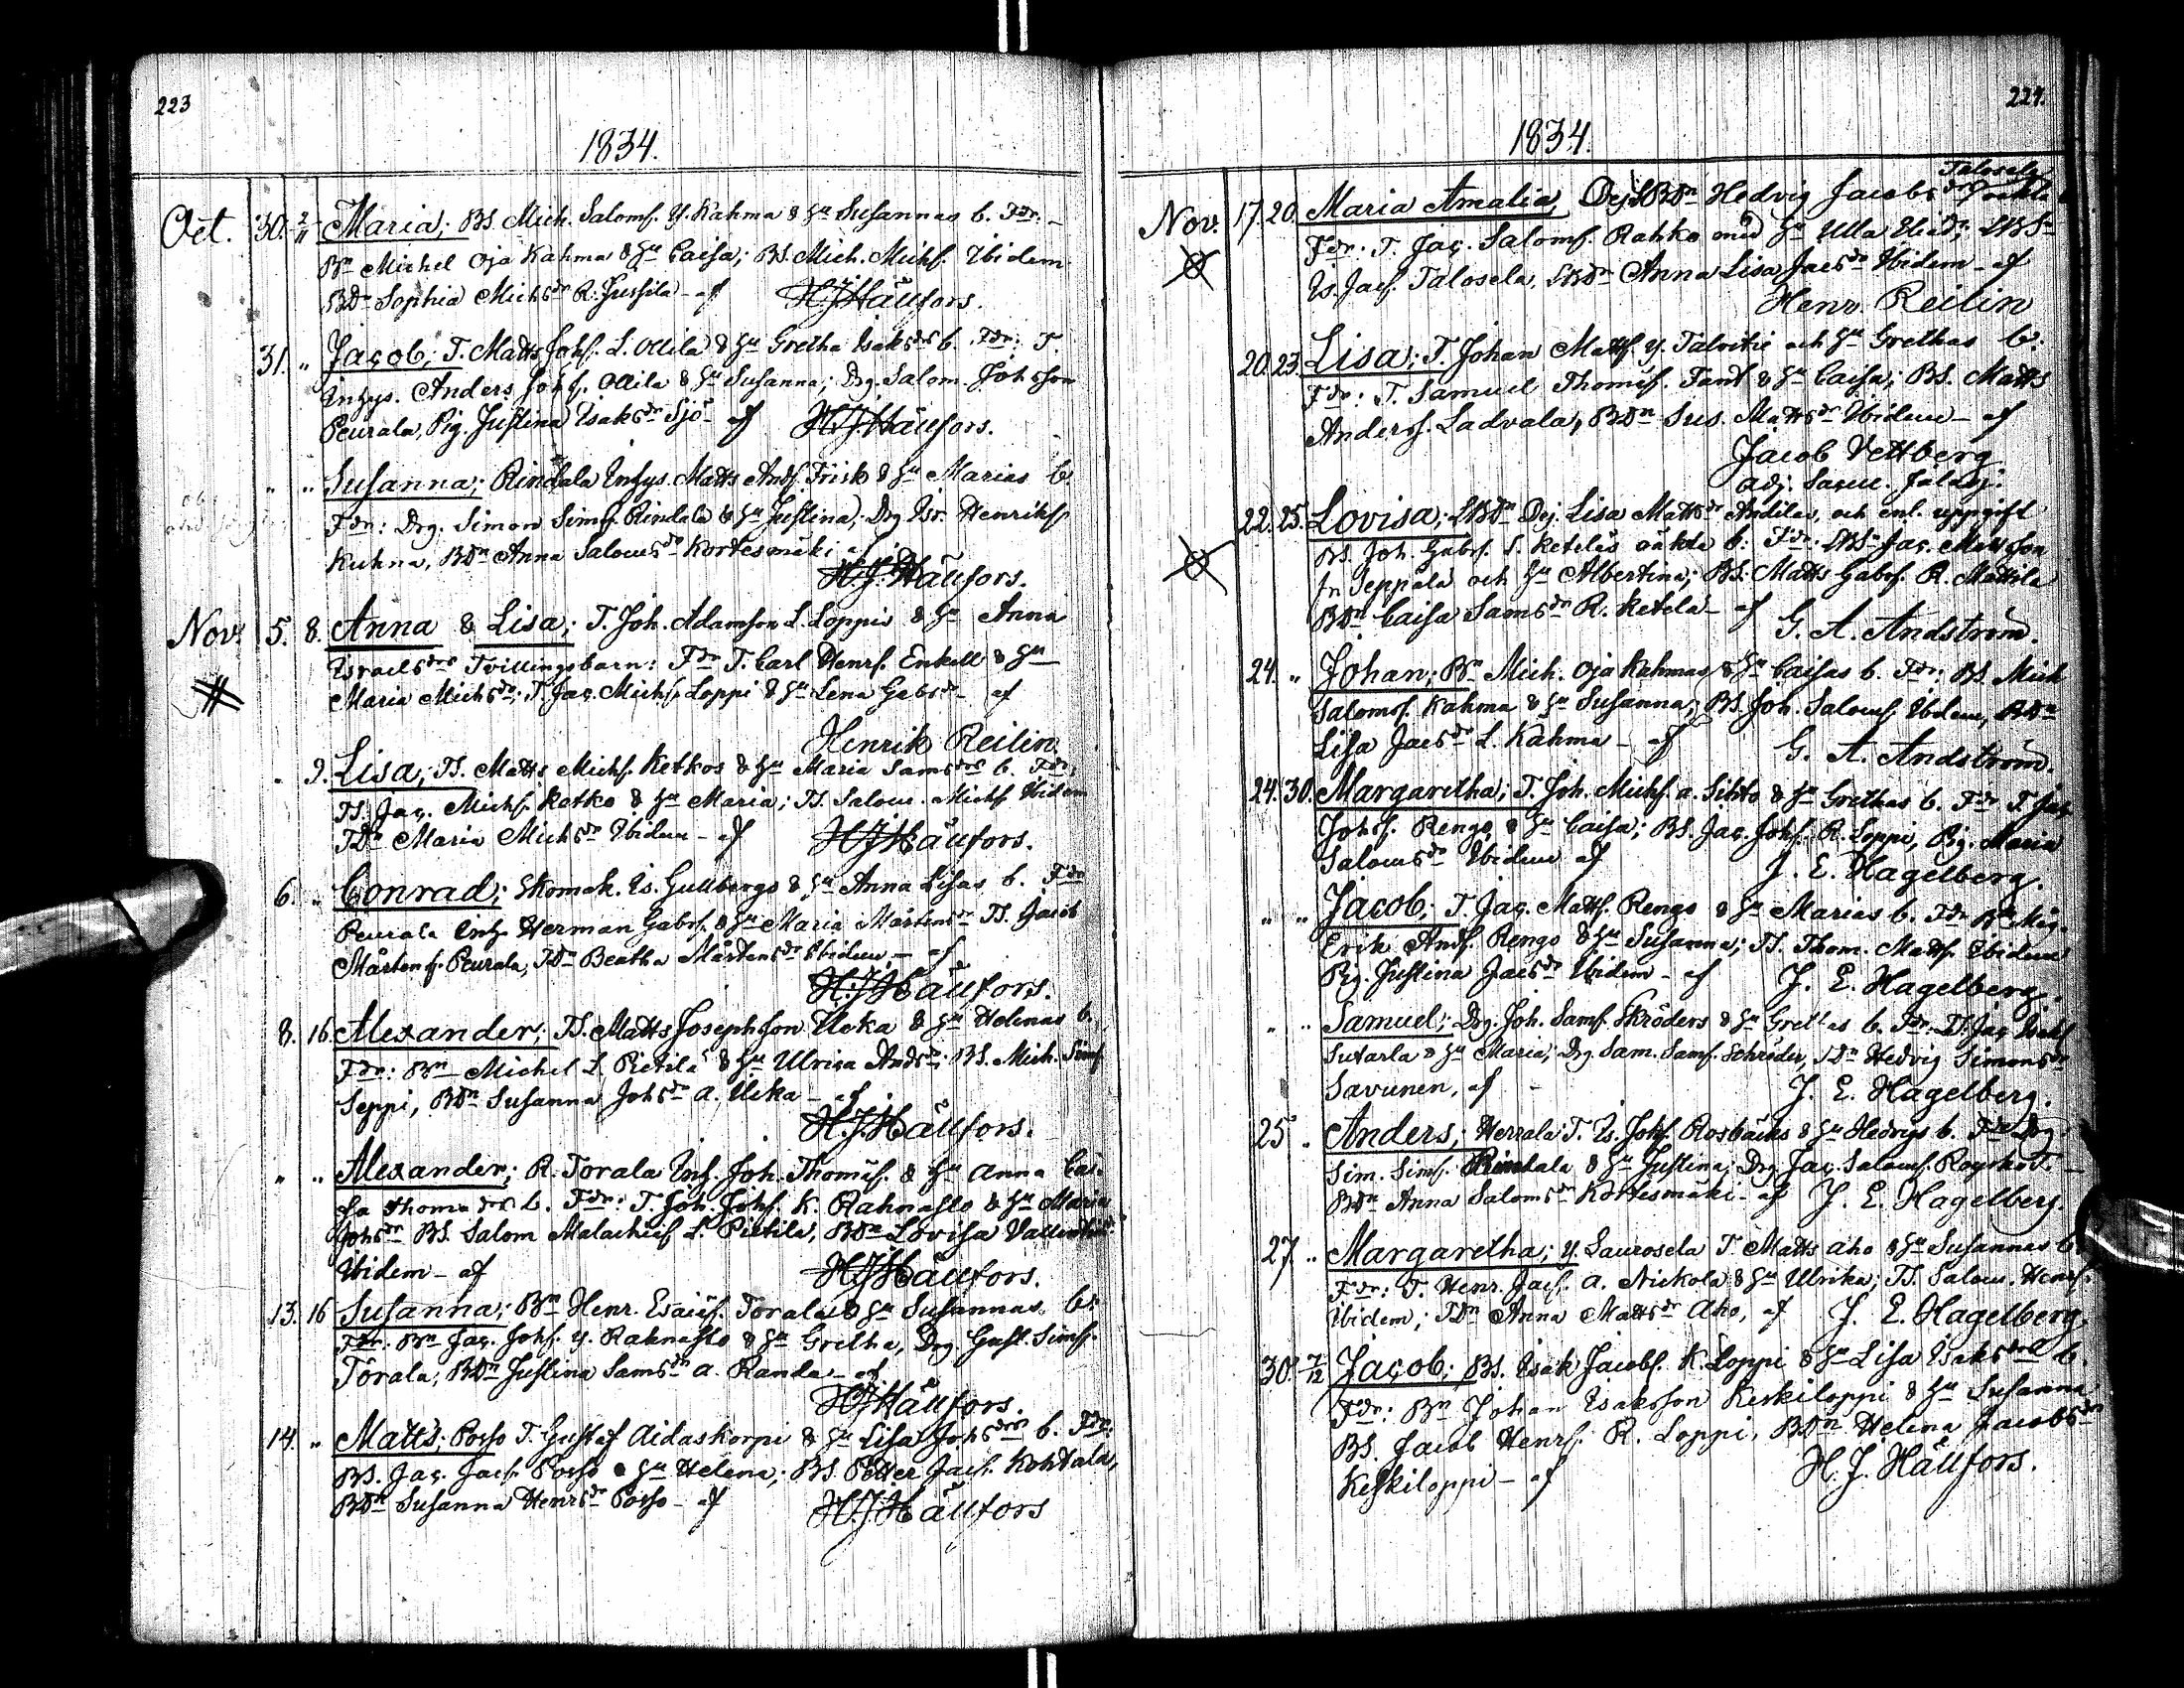 223
1834.
Oct. 30. 2/11 Maria; BS. Mich. Saloms. Y. Kahma & Hu Susannas b. Fdr: –
Bn Michel Oja Kahma & Hu Caisa; BS. Mich. Michs. Ibidem
BDr Sophia Michsdr R. Jussila – af H J Hällfors.
31. " Jacob; T. Matts Johs. L. Ollila & Hu Gretha Isaksdrs b. Fdr: T.
Inhys. Anders Johs. Ollila & Hu Susanna; Drg. Salom. Johsson
Peurala, Pig. Justina Isaksdr Sjö – af H. J. Hällfors.
" " Susanna; Rindala Inhys. Matts Ands. Frisk & Hu Marias b.
Fdr: Drg. Simon Sims. Rindala & Hu Justina; Drg Isr. Henriks
Kuhna, BDr Anna Salomsdr Kortesmäki
H. J. Hällfors.
Nov. 5. 8. Anna & Lisa; T. Joh. Adamson L. Loppis & Hu Anna
Israelsdrs Tvillingsbarn: Fdr T. Carl Henrs. Enkell & Hu
Maria Michsdr; T. Jac. Michs. Loppi & Hu Lena Gabsdr – af
Henrik Reilin.
" 9. Lisa; TS. Matts Michs. Ketkos & Hu Maria Samsdrs b. Fdr:
TS. Jac. Michs. Ketko & Hu Maria; TS. Salom. Michs. Ibidem
TDr Maria Michsdr Ibidem – af H J Hällfors.
6. " Conrad; Skomak. Is. Gullbergs & Hu Anna Lisas b. Fdr
Peurala Inhs Herman Gabrs. & Hu Maria Mårtensdr TS. Jacob
Mårtens. Peurala, TDr Beatha Mårtensdr Ibidem – af
H. J. Hällfors.
8. 16. Alexander; TS. Matts Josephson Ucka & Hu Helenas b.
Fdr: Bn Michel L. Pietilä & Hu Ulrica Andsdr; BS. Mich. Sims.
Seppi, BDr Susanna Johsdr a. Ucka – af
H. J. Hällfors.
" " Alexander; R. Torala Inh. Joh. Thomas. & Hu Anna Cai-
sa Thomasdrs b. Fdr: T. Joh. Johs. K. Rahnasto & Hu Maria
Johsdr BS. Salom Malachias. L. Pietila, BDr Lovisa
Ibidem – af H J Hällfors.
13. 16 Susanna; Bn Henr. Esaias. Torala & Hu Susannas b.
Fdr: Bn Jac. Johs. Y. Rahnasto & Hu Gretha, Drg. Gust. Sims.
Torala, BDr Justina Samsdr a. Randa – af
H J Hällfors.
14. " Matts; Porso T. Gustaf Aidaskorpi & Hu Lisa Johsdrs b. Fdr:
BS. Jac. Jacs. Porso & Hu Helena; BS. Petter Jacs. Kohtala,
BDr Susanna Henrsdr Porso – af H. J. Hällfors
224.
1834.
Nov. 17. 20. Maria Amalia; Hedvig Jacobsdr
Talosela
Fdr: T. Jac. Saloms. Rahko med Hu Ulla
Is. Jacs. Talosela, Anna Lisa Jacsdr Ibidem – af
Henr. Reilin
20. 23. Lisa; T. Johan Matts. Y. Talvitie och Hu Grethas b.
Fdr: T. Samuel Thomas. Fant & Hu Caisa; BS. Matts
Anders. Ladvala, BDr Sus. Mattsdr Ibidem – af
Jacob Vettberg
adj. Sacell.
22. 25. Lovisa; Dej. Lisa Mattsdr Andilas, och enl. uppgift
BS. Joh. Gabrs. S. Ketelas oäkta b. Fdr: Jac. Mattsson
Seppälä och Hu Albertina; BS: Matts Gabrs. R. Mattila
BDr Caisa Samsdr R. Ketelä – af
G. A. Andström.
24. " Johan; Bn Mich. Oja Kahmas & Hu Caisas b. Fdr: BS. Mich
Saloms. Kahma & Hu Susanna; BS. Joh. Saloms. Ibidem, BDr
Lisa Jacsdr L. Kahma – af G. A. Andström.
24. 30. Margaretha; T. Joh. Michs. a. Sihto & Hu Grethas b. Fdr T. Jac.
Johs. Rengo & Hu Caisa; BS. Jac. Johs. R. Loppi, Pig. Maria
Salomsdr Ibidem af J. E. Hagelberg.
" " Jacob; T. Jac. Matts. Rengo & Hu Marias b. Fdr Bn Måg.
Erik Ands. Rengo & Hu Susanna; TS. Thom. Matts. Ibidem
Pig. Justina Jacsdr Ibidem – af J. E. Hagelberg.
" " Samuel; Drg. Joh. Sams. Skröders & Hu Grethas b. Fdr: TS. Jac. Isaks
Sutarla & Hu Maria; Drg. Sam. Sams. Schröder, TDr Hedvig Simonsdr
Savunen, af – J. E. Hagelberg.
25 " Anders; Herrala T. Is. Johs. Rosbäcks & Hu Hedvigs b. Fdr Drg
Sim. Sims. Rindala & Hu Justina; Drg Jac. Saloms. Roysko T. –
BDr Anna Salomsdr Kortesmäki – af J. E. Hagelberg.
27. " Margaretha; Y. Laurosela T. Matts Aho & Hu Susannas b.
Fdr: T. Henr. Jacs. a. Nickola & Hu Ulrika; TS. Salom. Henrs.
Ibidem; TDr Anna Mattsdr Aho, af J. E. Hagelberg.
30. 7/12 Jacob; BS. Isak Jacobs. K. Loppi & Hu Lisa Isaksdrs b.
Fdr: Bn Johan Isaksson Keskiloppi & Hu Susanna
BS. Jacob Henrs. R. Loppi, BDr Helena Jacobsdr
Keskiloppi – af H. J. Hällfors.